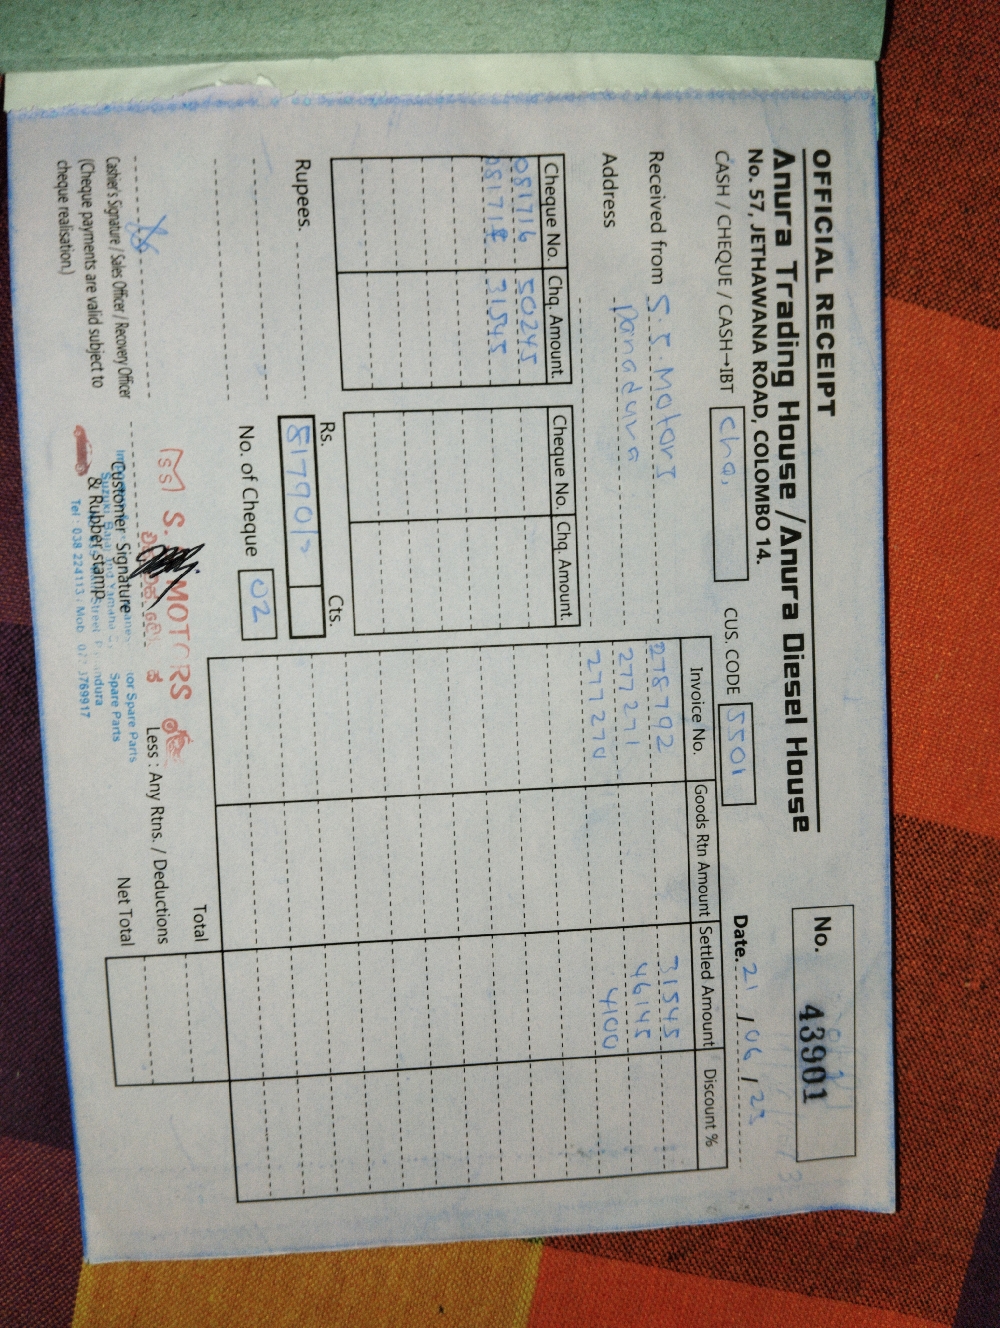 OFFICIAL RECEIPT
No. 43901
Anura Trading House / Anura Diesel House
No. 57, JETHAWANA ROAD, COLOMBO 14.
CASH / CHEQUE / CASH→IBT Chq, CUS. CODE SS01 Date. 21 / 06 / 23
Received from S.S. Motors
Address Panadura
Cheque No. Chq. Amount. Cheque No. Chq. Amount.
081716 50245
081718 31545
Invoice No. Goods Rtn Amount Settled Amount Discount %
278792 31545
277271 46145
277270 4100
Rupees.
Rs. Cts.
81790/=
No. of Cheque 02
Total
Less : Any Rtns. / Deductions
Net Total
SS S. MOTORS
Spare Parts
Spare Parts
Customer Signature
& Rubber stamp
Cashier's Signature / Sales Officer / Recovery Officer
(Cheque payments are valid subject to
cheque realisation.)